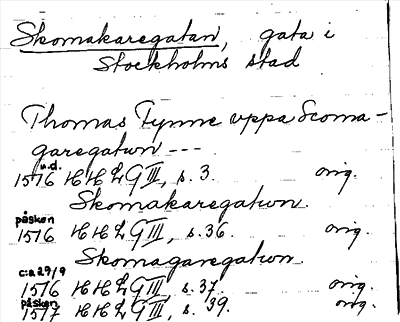 Skomakaregatan, gata i
Stockholms stad
Thomas Fynne uppa Scoma-
garegatwn ---
u.d.
1516 HHLG III, s. 3. orig.
Skomakaregatwn.
påsken
1516 HHLG III, s. 36. orig.
Skomagaregatwn.
c:a 29/9
1516 HHLG III, s. 37. orig.
påsken
1517 HHLG III, s. 39. orig.